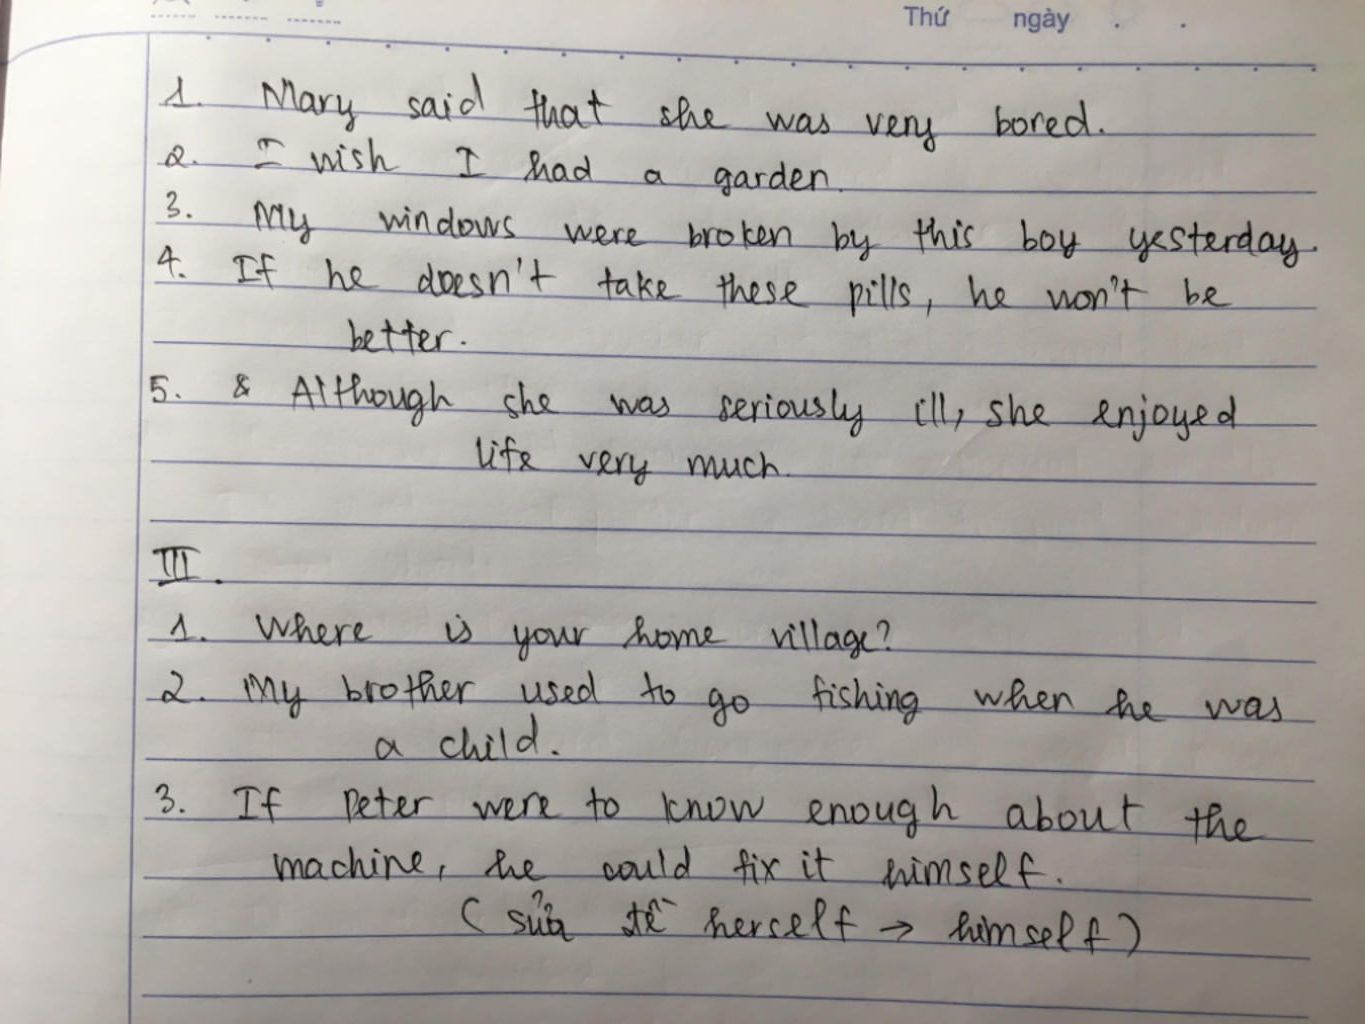 Thứ ngày . .
1. Mary said that she was very bored.
2. I wish I had a garden.
3. My windows were broken by this boy yesterday.
4. If he doesn't take these pills, he won't be
better.
5. & Although she was seriously ill, she enjoyed
life very much.
III.
1. Where is your home village?
2. My brother used to go fishing when he was
a child.
3. If Peter were to know enough about the
machine, he could fix it himself.
(sửa đề herself → himself)